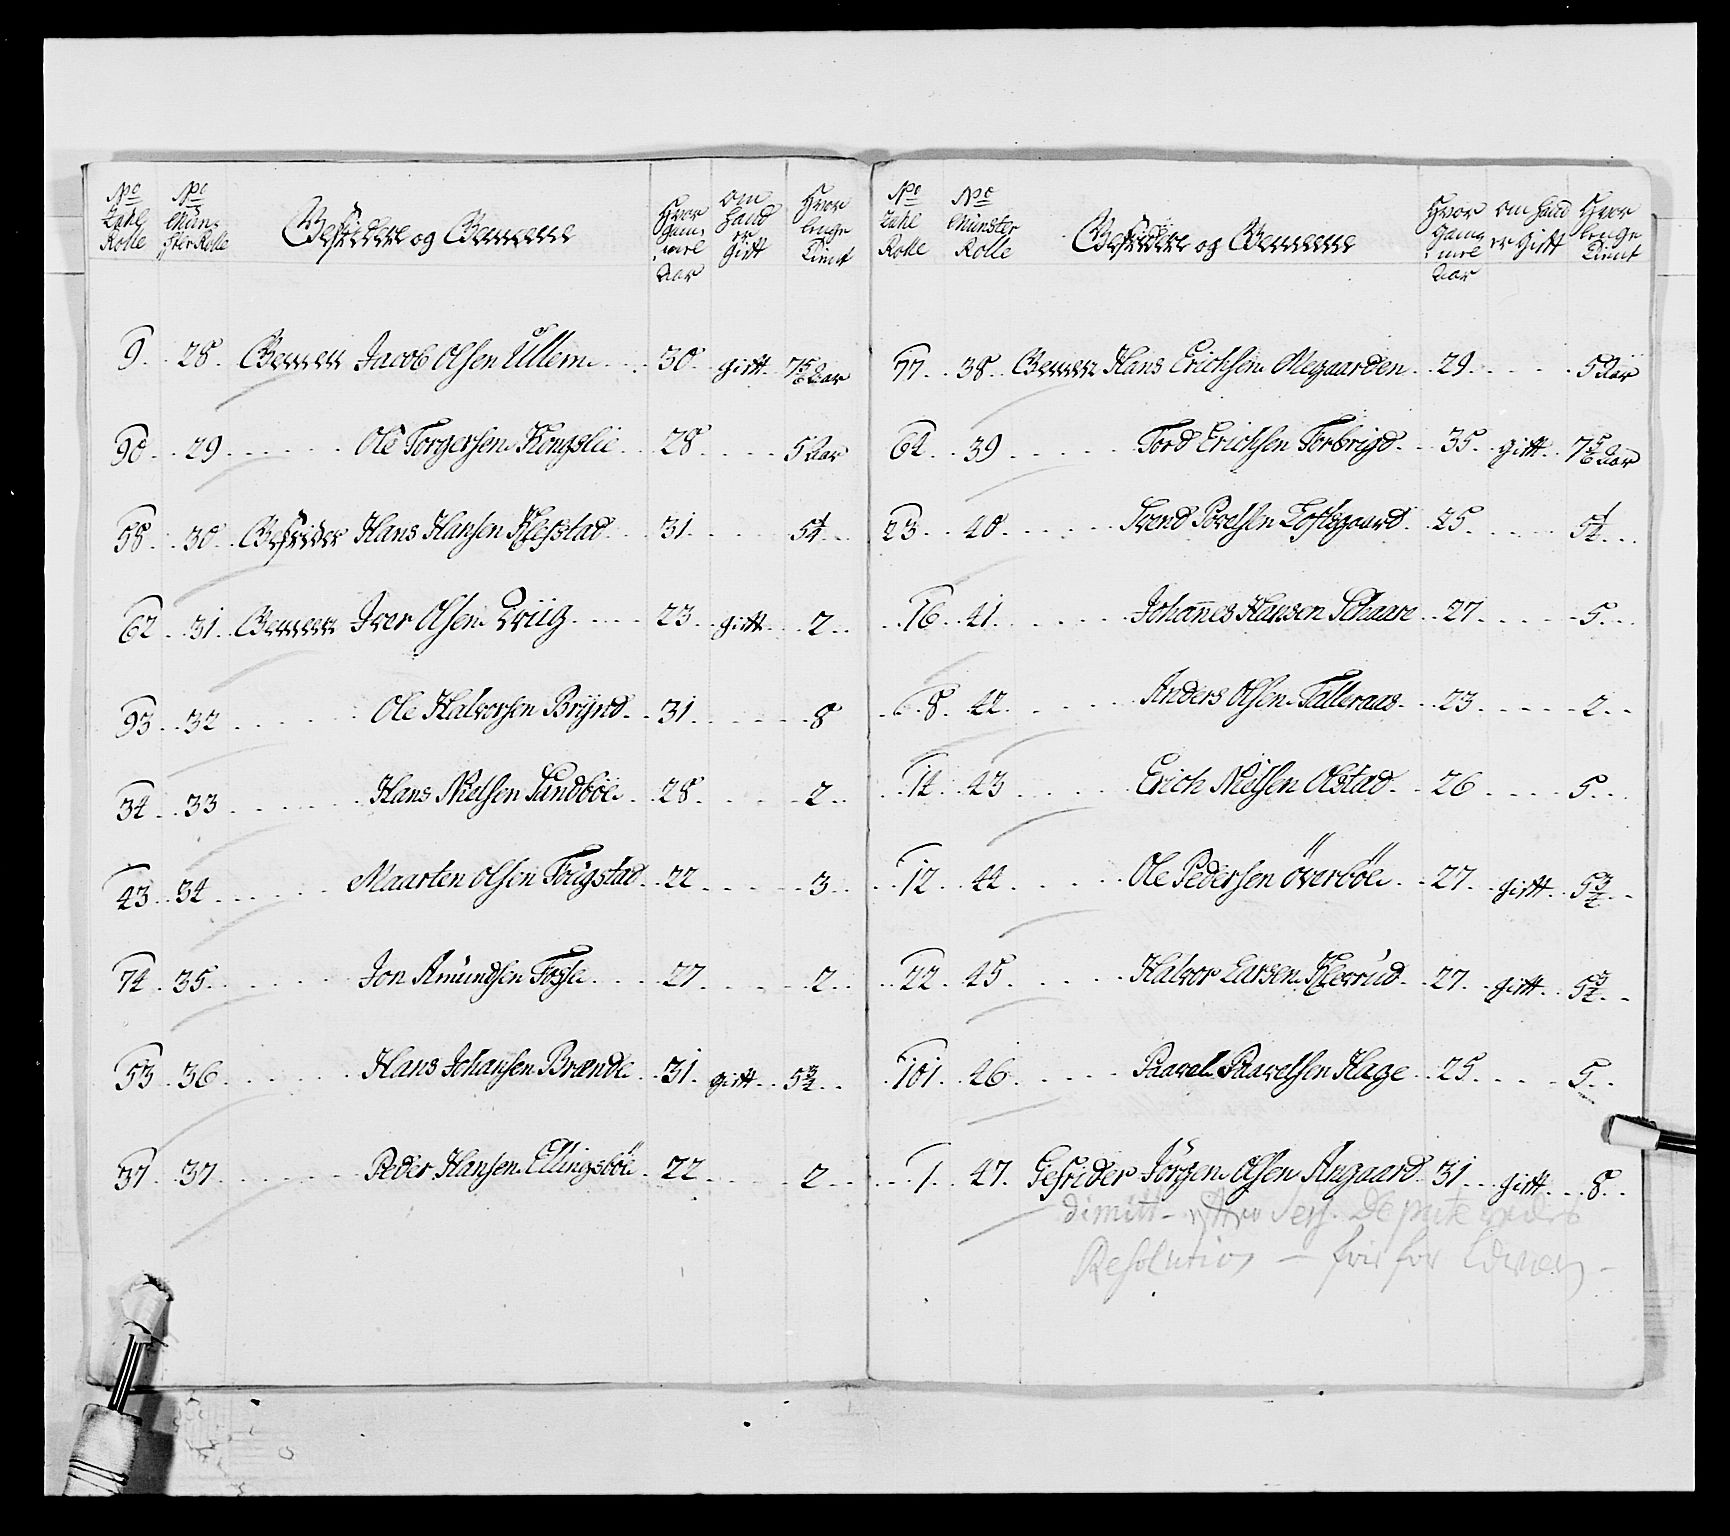 No Zahl Rolle | No Mün- ster Rolle | Gefridere og Gemeene | Hvor Gam- mel Aar | Om hand er Gift | Hvor lenge Tient
9. 28. Gemeen Jacob Olsen Ullern 30. gift 7 5/6 Aar
90. 29. Ole Torgersen Kongslie 28. 5 Aar
58. 30. Gefrider Hans Hansen Klefstad 31. 5 1/4
62. 31. Gemeen Iver Olsen 23. gift 2
93. 32. Ole Halvorsen Brÿnd 31. 8
34. 33. Hans Nielsen Sandböe 28. 2
43. 34. Maarten Olsen Fougstad 22. 3
74. 35. Jon Amundsen Fosse 27. 2
53. 36. Hans Johansen Brænde 31. gift 5 3/4
37. 37. Peder Hansen Ellingsböe 22. 2
No Zahl Rolle | No Münster Rolle | Gefridere og Gemeene | Hvor Gam- mel Aar | Om hand er Gift | Hvor lenge Tient
77. 38. Gemeen Hans Erichsen Megaarden 29. 5 Aar
64. 39. Tord Erichsen Torbrigd 35. gift 7 5/6 Aar
23. 40. Svend Povelsen Toftsgaard 25. 5 1/4
16. 41. Johannes Hansen Schaare 27. 5
8. 42. Anders Olsen Talleraas 23. 2
14. 43. Erich Nielsen Olstad 26. 5
12. 44. Ole Pedersen Överböe 27. gift 5 3/4
22. 45. Halvor Larsen Klevrud 27. gift 5 3/4
101. 46. Paavel Paavelsen Hage 25. 5
1. 47. Gefrider Jörgen Olsen Augaard 31. gift 8
dimitt Deputeredes
Resolution — for